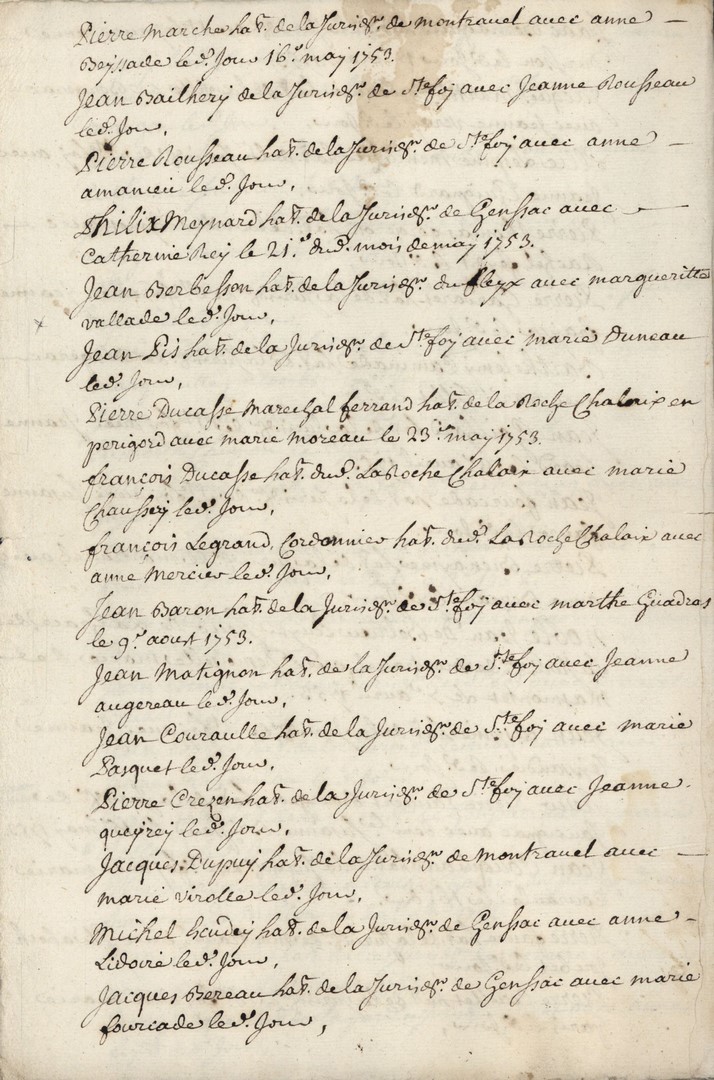 Pierre Marche hat. de la Jurisd.on de montravel avec anne —
Beyssade led. Jour 16.e may 1753.
Jean Bailhery de la Jurisd.on de S.te foy avec Jeanne Rousseau
led. Jour,
Pierre Rousseau hat. de la Jurisd.on de S.te foy avec anne —
amanieu led. Jour,
Philix Meynard hat. de la Jurisd.on de Genssac avec —
Catherine Rey le 21.e dud. mois de may 1753.
Jean Berbesson hat. de la Jurisd.on du fleyx avec margueritte
vallade led. Jour,
Jean Pis hat. de la Jurisd.on de S.te foy avec marie Duneau
led. Jour,
Pierre Ducasse Marechal ferrand hat. de la Roche Chalaix en
perigord avec marie moreau le 23.e may 1753.
françois Ducasse hat. dud. La Roche Chalaix avec marie
Chaussey led. Jour,
françois Legrand, Cordonnier hat. dud. La Roche Chalaix avec
anne Mercier led. Jour,
Jean Baron hat. de la Jurisd.on de S.te foy avec marthe Guadras
le 9.e aoust 1753.
Jean Matignon hat. de la Jurisd.on de S.te foy avec Jeanne
augereau led. Jour,
Jean Couraulle hat. de la Jurisd.on de S.te foy avec marie
Pasquet led. Jour,
Pierre Crezen hat. de la Jurisd.on de S.te foy avec Jeanne
queyrey led. Jour,
Jacques Dupuy hat. de la Jurisd.on de montravel avec —
marie virolle led. Jour,
Michel haudy hat. de la Jurisd.on de Genssac avec anne -
Lidoire led. Jour,
Jacques Bereau hat. de la Jurisd.on de Genssac avec marie
fourcade led. Jour,